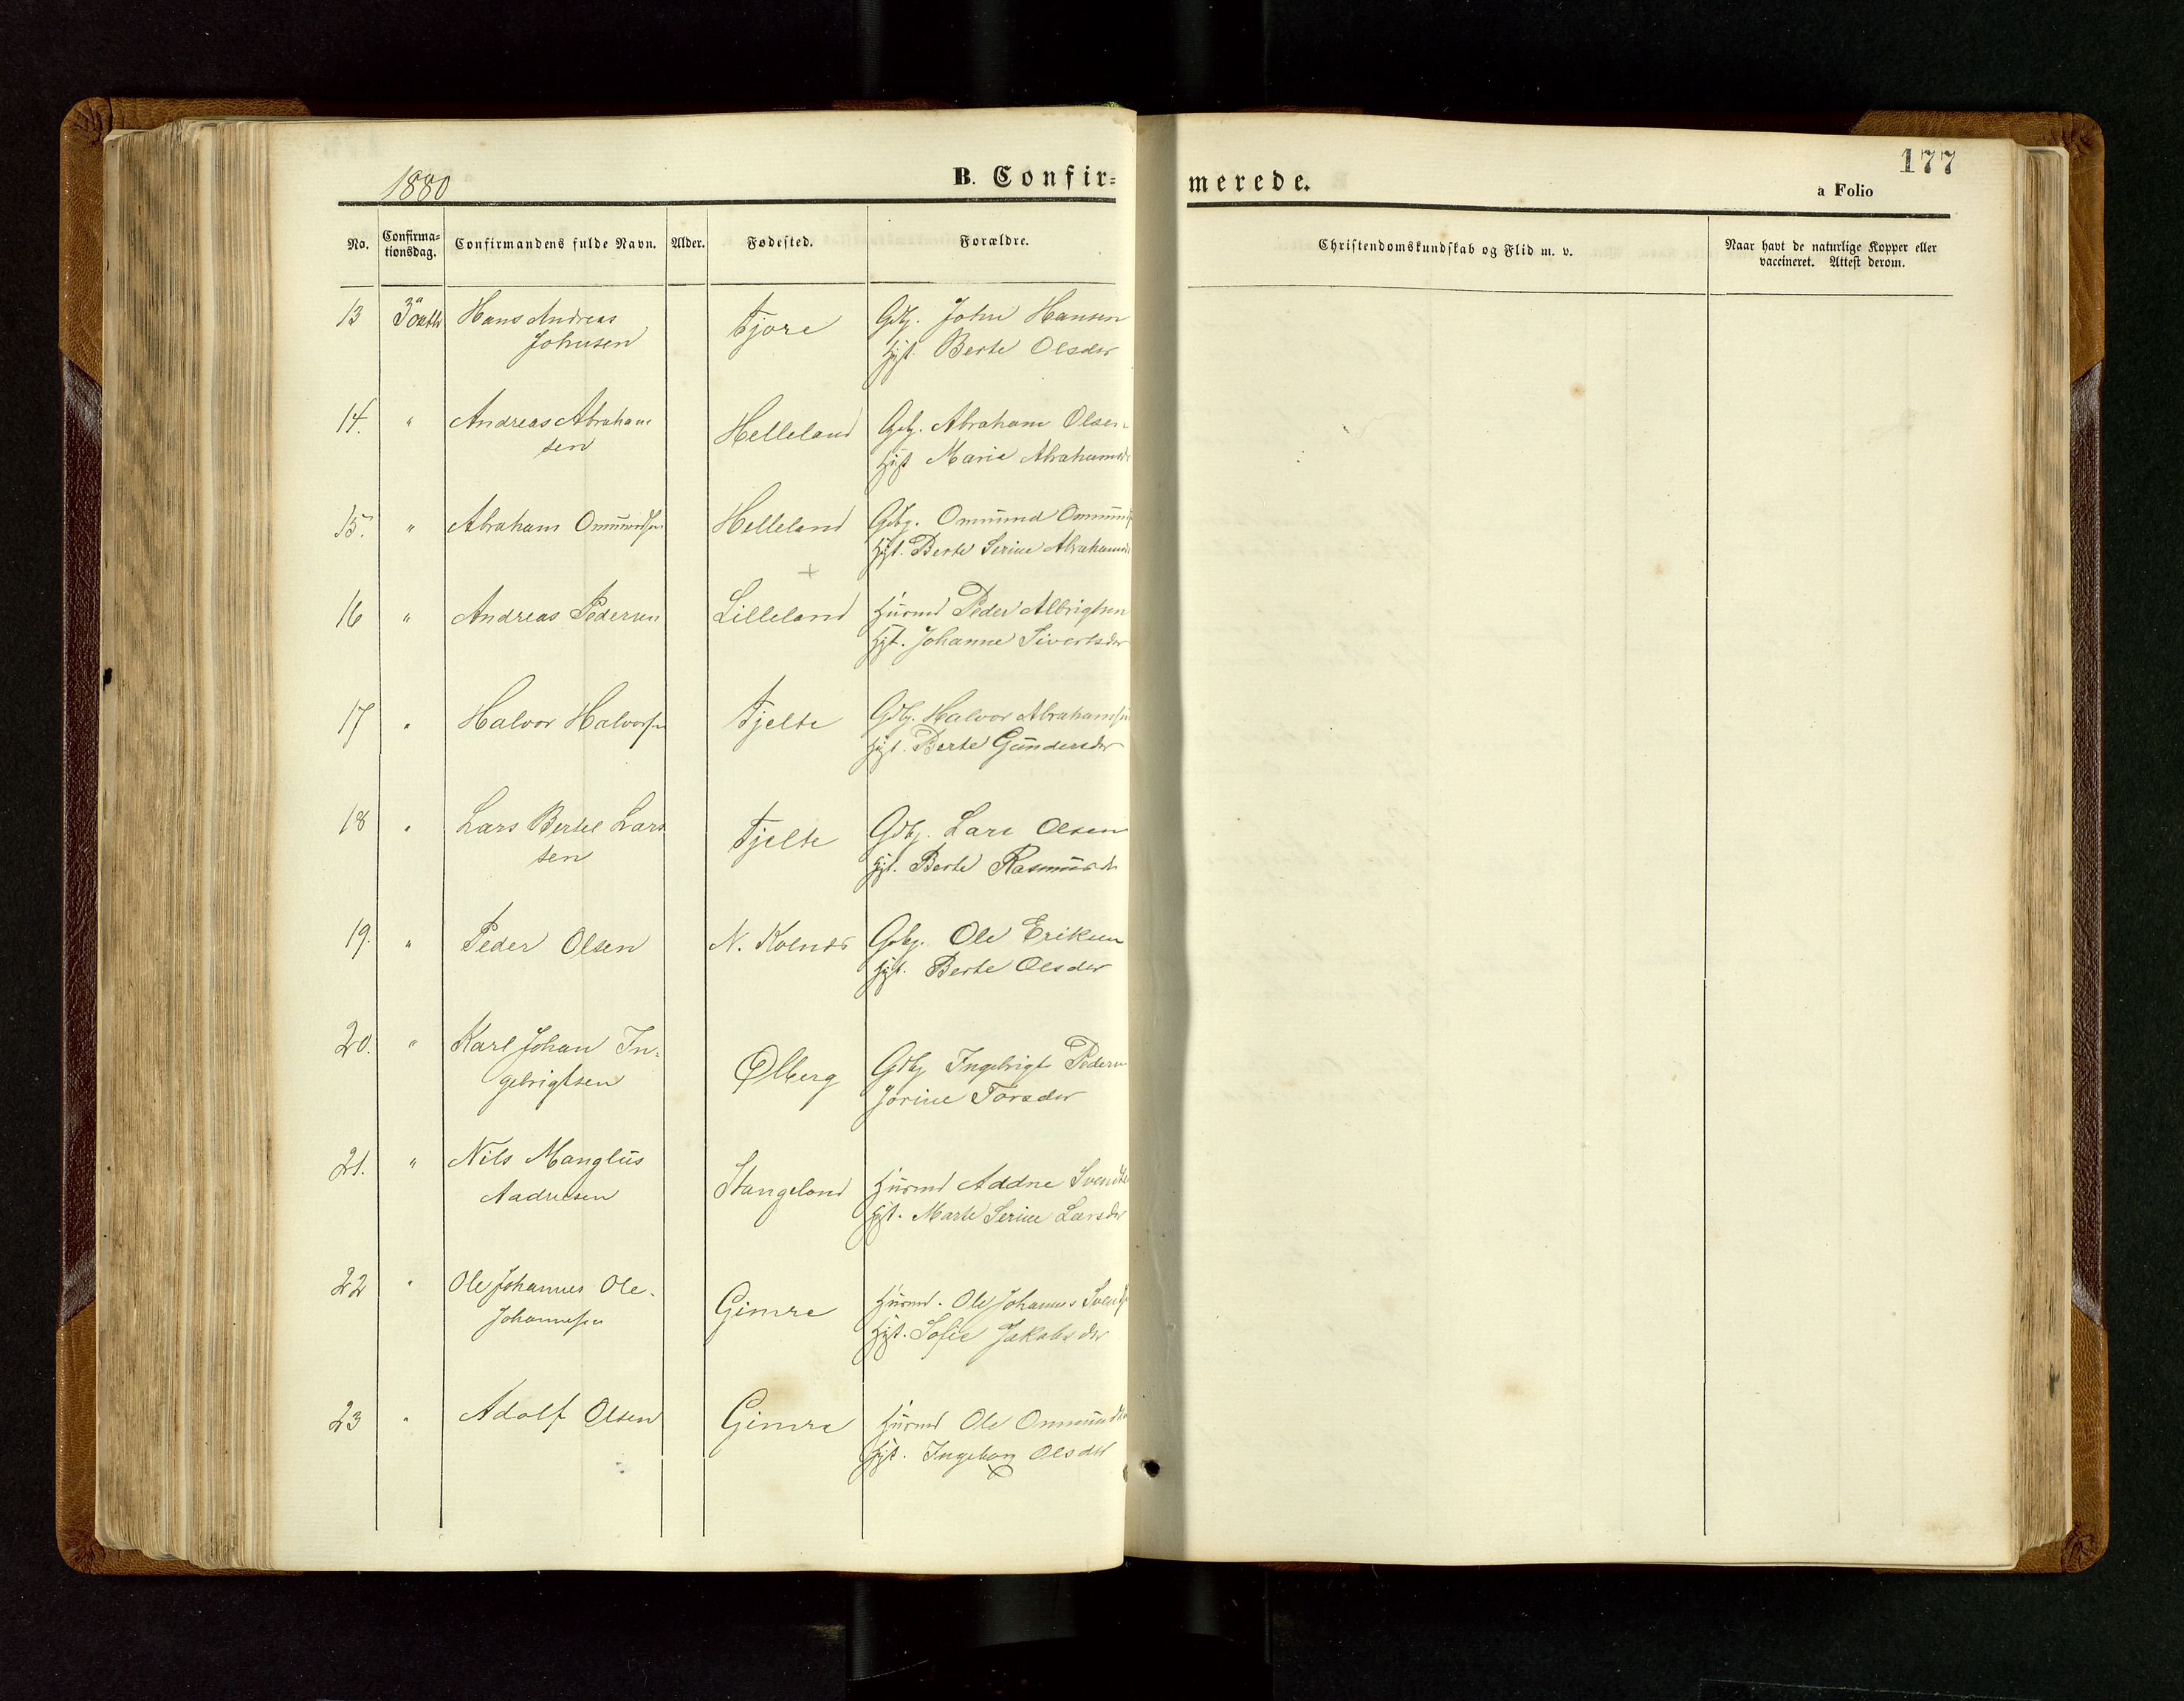 177
1880
B. Confir=
merede.
a Folio
No.
Confirma=
tionsdag.
Confirmandens fulde Navn.
Alder.
Fødested.
Forældre.
Christendomskundskab og Flid m. v.
Naar havt de naturlige Kopper eller
vaccineret. Attest derom.
13 Hans Andreas Tjora Gdbg. John Hansen
Johnsen Hgt. Berte Olsdtr
14. " Andreas Abraham Helleland Gdbg. Abraham Olsen
sen Hgt Maria Abrahamsdr
15. " Abraham Omundsen Helleland Gdbg. Omund Omunds
Hgt. Berte Serine Abrahamsdr
+
16 " Andreas Pedersen Lilleland Husmd Peder Albrigtsen
Hgt. Johanne Sivertsdtr
17 " Halvor Halvorsen Tjelte Gdbg. Halvor Abrahamsen
Hgt. Berte Gundersdtr
18 " Lars Bertel Lars Tjelte Gdbg. Lars Olsen
sen Hgt. Berte Rasmusdtr
19. " Peder Olsen N. Kolnes Gdbg. Ole Eriksen
Hgt. Berte Olsdtr
20. " Karl Johan In- Ølberg Gdbg Ingebrigt Pedersen
gebrigtsen Jorine Torsdtr
21. " Nils Manglus Stangeland Husmd Addne Svends
Aadnesen Hgt. Marte Serine Larsdtr
22 " Ole Johannes Ole. Gimra Husmd. Ole Johannes Svends
Johannesen Hgt. Sofie Jakobsdtr
23 " Adolf Olsen Gimra Husmd Ole Omunds
Hgt. Ingeborg Olsdtr